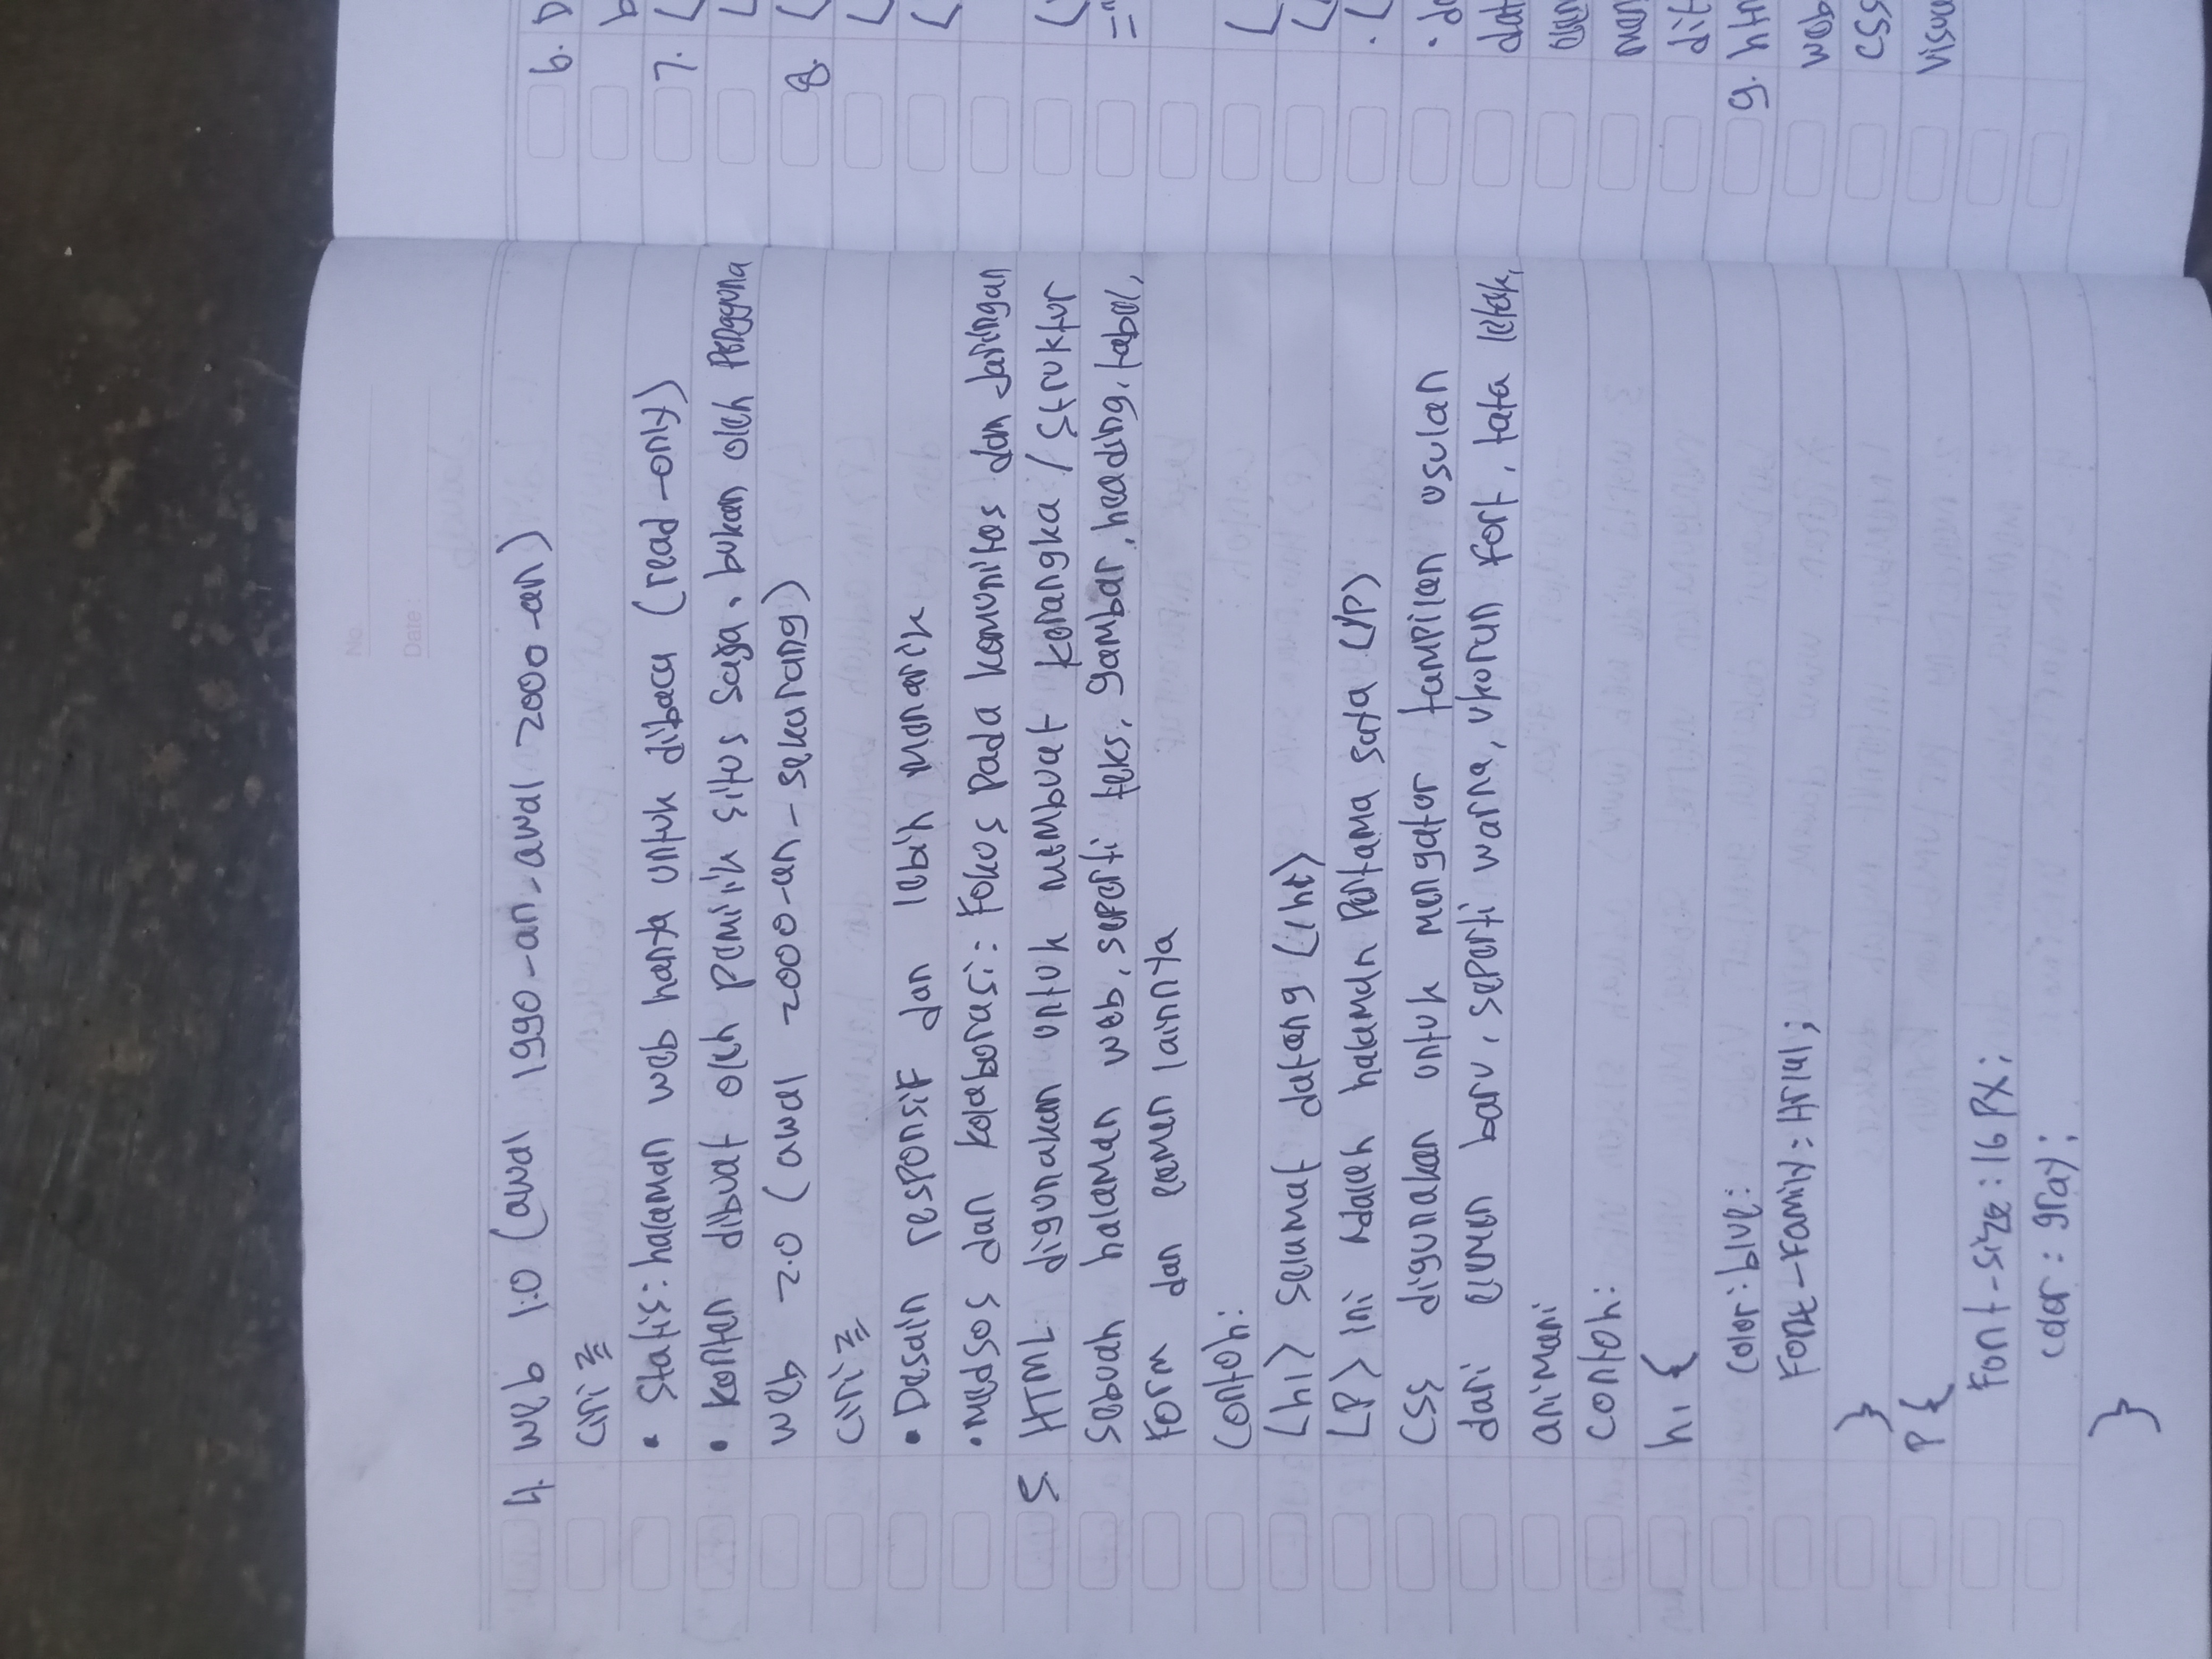 No.
Date:
4. Web 1.0 (awal 1990-an-awal 2000-an)
Ciri =
• Statis: halaman web hanya untuk dibaca (read-only)
• Konten dibuat oleh pemilik situs saja. bukan oleh pengguna
Web 2.0 (awal 2000-an-sekarang)
Ciri =
• Desain responsif dan lebih menarik
• Medsos dan kolaborasi: Fokus pada komunitas dan Jaringan
5 HTML digunakan untuk membuat kerangka / Struktur
Sebuah halaman web, seperti teks, gambar, heading, tabel,
Form dan elemen lainnya
Contoh:
<h1> Selamat datang </h1>
<P> ini adalah halaman Pertama saya </P>
CSS digunakan untuk mengatur tampilan usulan
dari elemen baru, seperti warna, ukuran font, tata letak,
animasi
Contoh:
h1 {
Color: blue;
Font-Family: Arial;
}
P {
Font-size: 16 PX;
color: gray;
}
6. D
7. (
8. (
9. htm
web
CSS
visua